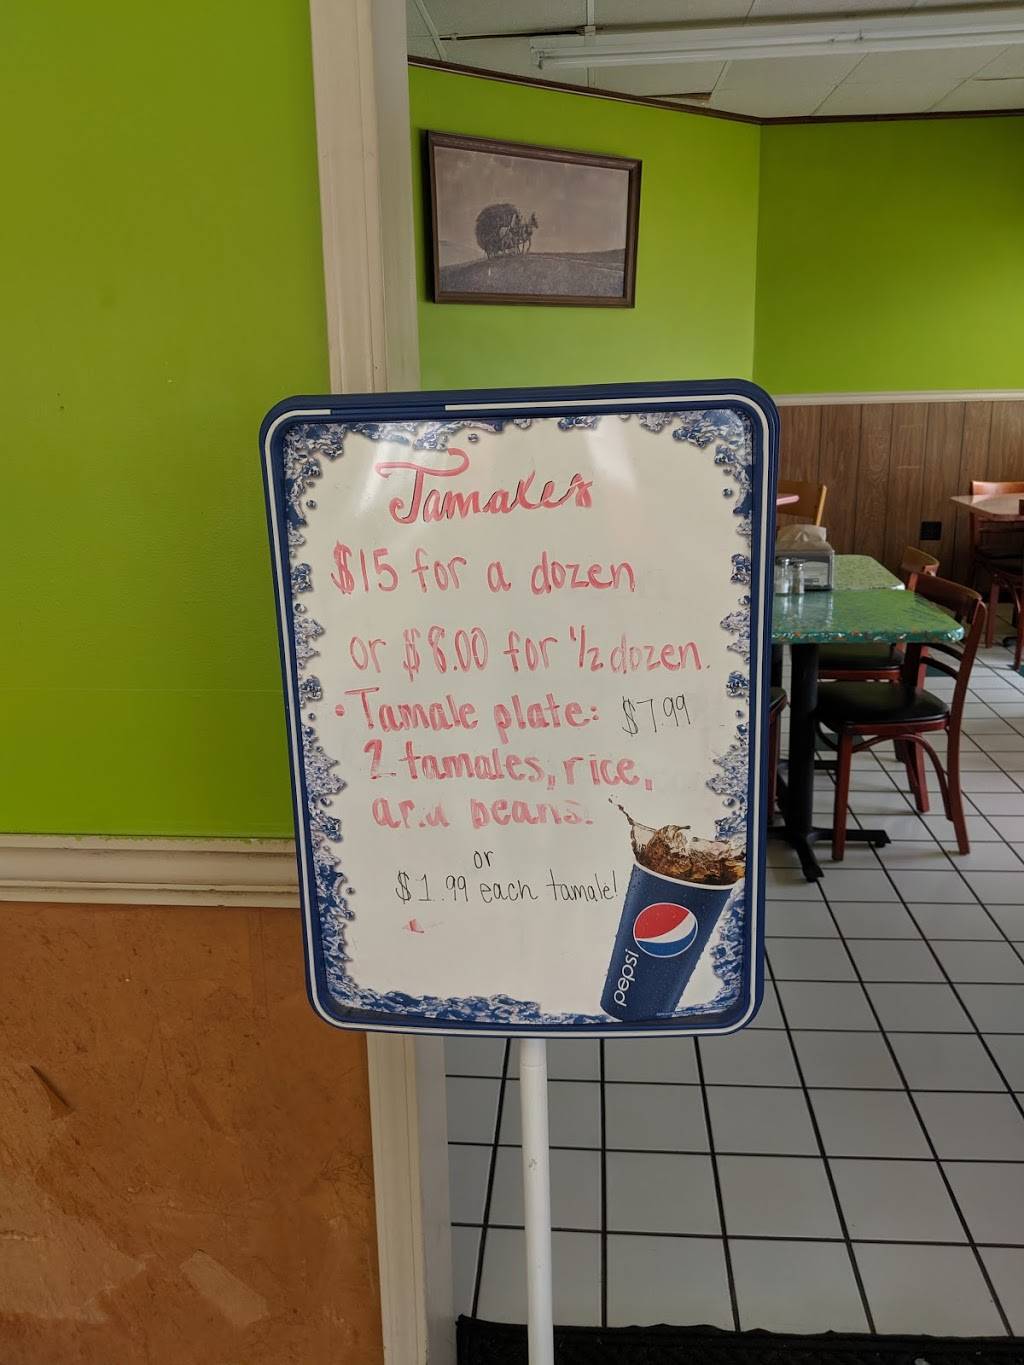 Tamales
$15 for a dozen
or $8.00 for 1/2 dozen.
• Tamale plate: $7.99
2 tamales, rice,
and beans.
or
$1.99 each tamale!
pepsi